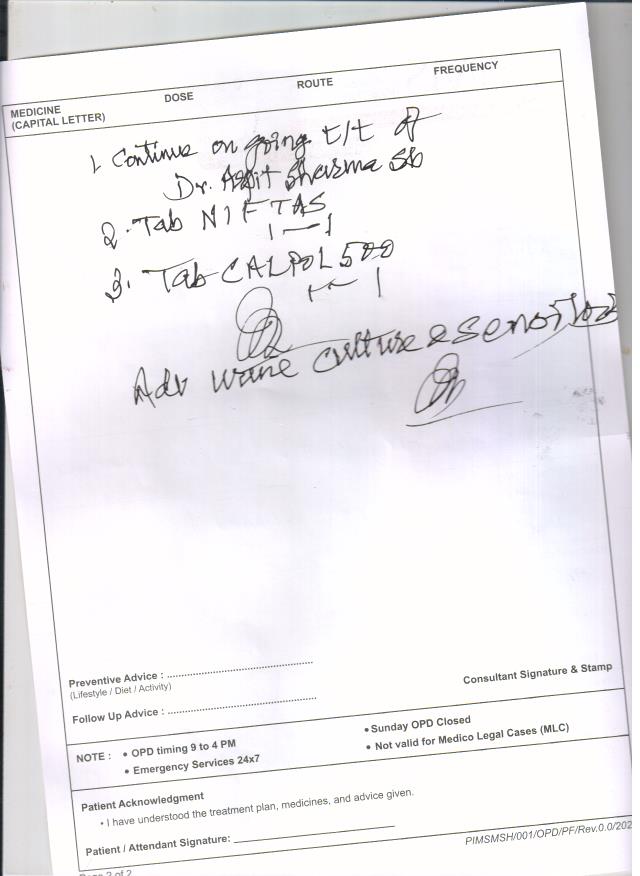 MEDICINE DOSE ROUTE FREQUENCY
(CAPITAL LETTER)
1. Continue on going t/t of
Dr. Arpit Sharma Sb
2. Tab NIFTAS
1 — 1
3. Tab CALPOL 500
1 — 1
Adv urine culture &
Preventive Advice :
(Lifestyle / Diet / Activity)
Consultant Signature & Stamp
Follow Up Advice :
NOTE : • OPD timing 9 to 4 PM • Sunday OPD Closed
• Emergency Services 24x7 • Not valid for Medico Legal Cases (MLC)
Patient Acknowledgment
• I have understood the treatment plan, medicines, and advice given.
Patient / Attendant Signature:
PIMSMSH/001/OPD/PF/Rev.0.0/202
Page 2 of 2